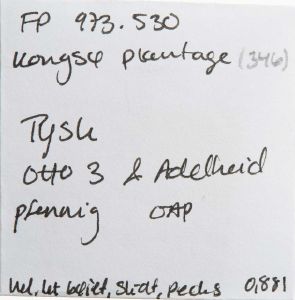 FP 973.530
Kongsø plantage (346)
Tysk
Otto 3 & Adelheid
pfennig OAP
hel, let bøjet, slidt, pecks 0,881